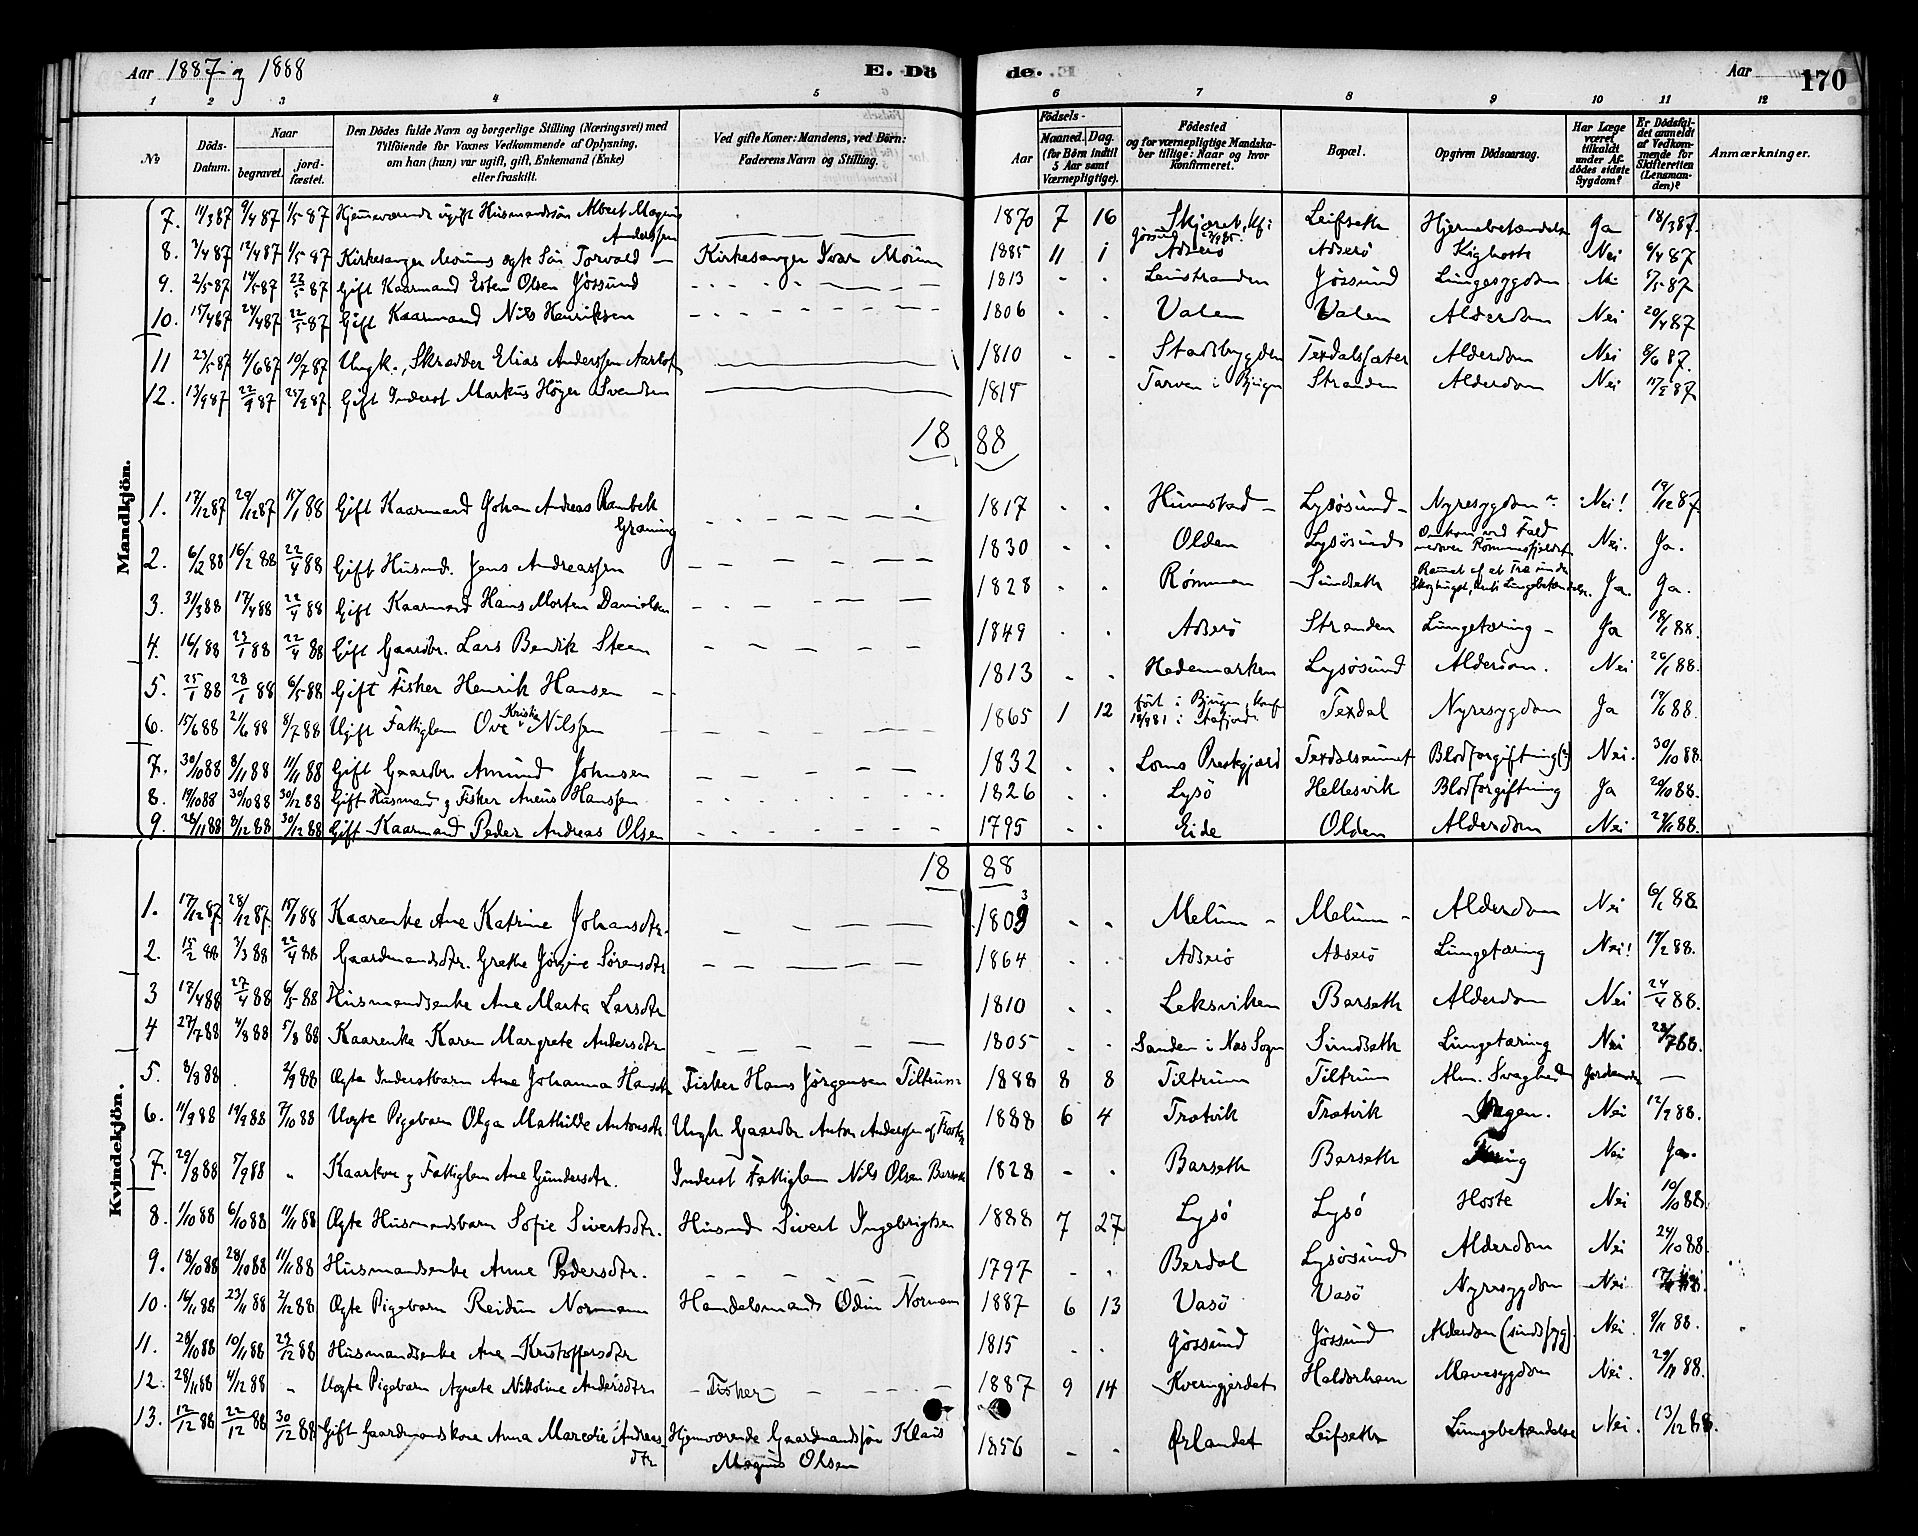 Aar 1887 og 1888 E. Dö de. Aar 170
1 2 3 4 5 6 7 8 9 10 11 12
No Döds-Datum. Naar begravet. jordfæstet. Den Dödes fulde Navn og borgerlige Stilling (Næringsvei) med Tilföiende for Voxnes Vedkommende af Oplysning, om han (hun) var ugift, gift, Enkemand (Enke) eller fraskilt. Ved gifte Koner: Mandens, ved Børn: Faderens Navn og Stilling. Aar Födsels- Maaned. Dag. (for Börn indtil 5 Aar samt Værnepligtige). Födested og for værnepligtige Mandskaber tillige: Naar og hvor konfirmeret. Bopæl. Opgiven Dödsaarsag. Har Læge været tilkaldt under Afdödes sidste Sygdom? Er Dödsfaldet anmeldt af Vedkommende for Skifteretten (Lensmanden)? Anmærkninger.
Mandkjön.
7. 11/3 87 9/4 87 1/5 87 Hjemmeværende ugift Husmandssön Albert Magnus Anderssen 1870 7 16 Skjæret, Kf: Jössund Leifseth Hjernebetændelse Ja 18/3 87.
8. 3/4 87 12/4 87 1/5 87 Kirkesanger Moums ægte Sön Torvald Kirkesanger Ivar Moum 1885 11 1 Adserö Adserö Kighoste Nei 6/4 87
9. 2/5 87 14/5 87 22/5 87 Gift Kaarmand Esten Olsen Jössund 1813 Leinstranden Jössund Lungesygdom Nei 5/5 87
10. 15/4 87 24/4 87 22/5 87 Gift Kaarmand Nils Henriksen 1806 Valen Valen Alderdom Nei 20/4 87
11 23/5 87 4/6 87 10/7 87 Ungk., Skrædder Elias Anderssen Aarlot 1810 Stadsbygden Texdalsæter Alderdom Nei 6/6 87.
12. 13/9 87 22/9 87 25/9 87 Gift Inderst Markus Höyer Svendsen 1815 Tarven i Bjugn Stranden Alderdom Nei 15/9 87
18 88
1. 17/12 87 29/12 87 15/1 88 Gift Kaarmand Johan Andreas Rambek Graning 1817 Humstad Lysösund Nyresygdom Nei! 19/12 87
2. 6/2 88 16/2 88 22/4 88 Gift Husmd. Jens Andreassen 1830 Olden Lysösund Omkom ved Fald nedover Römmesfjeldet Nei. Ja.
3. 31/3 88 17/4 88 22/4 88 Gift Kaarmand Hans Morten Danielsen 1828 Römmen Sundseth Ramt af et Træ under Skoghugst, Lungebetændelse. Ja. Ja.
4. 16/1 88 23/1 88 22/4 88 Gift Gaardbr. Lars Bendik Steen 1849 Adserö Stranden Lungetæring Ja 18/1 88.
5. 25/1 88 28/1 88 6/5 88 Gift Fisker Henrik Hansen 1813 Hedemarken Lysösund Alderdom. Nei 26/1 88.
6. 15/6 88 21/6 88 8/7 88 Ugift Fattiglem Ove Kristian Nilssen 1865 1 12 född i Bjugn, Konf i Aafjord Texdal Nyresygdom Ja 19/6 88.
7. 30/10 88 8/11 88 11/11 88 Gift Gaardbr. Amund Johnsen 1832 Loms Prestegjæld Texdalseunet Blodforgiftning(?) Nei. 30/10 88.
8. 19/10 88 30/10 88 30/12 88 Gift Husmand og Fisker Aneus Hanssen 1826 Lysö Hellesvik Blodforgiftning Ja 20/10 88.
9. 28/11 88 8/12 88 30/12 88 Gift Kaarmand Peder Andreas Olsen 1795 Eide Olden Alderdom Nei 29/11 88.
18 88
Kvindekjön.
1. 17/12 87 28/12 87. 15/1 88 Kaarenke Ane Katrine Johansdtr. 1803 Melum Melum Alderdom Nei 6/1 88
2. 15/2 88 3/3 88 22/4 88 Gaardmandsdtr. Grethe Jörgine Sörensdtr 1864 Adserö Adserö Lungetæring Nei! 17/2 88.
3 17/4 88 27/4 88 6/5 88 Husmandsenke Ane Marta Larsdtr 1810 Leksviken Barseth Alderdom Nei 24/4 88.
4 27/7 88 4/8 88 5/8 88 Kaarenke Karen Margrete Andersdtr 1805 Sanden i Næs Sogn Sundseth Lungetæring Nei 28/7 88.
5. 8/8 88 2/9 88 Ægte Inderstbarn Ane Johanna Hansdtr Fisker Hans Jörgensen Tiltrum 1888 8 8 Tiltrum Tiltrum Alm. Svaghed Jordemoder
6. 11/9 88 19/9 88 7/10 88 Uægte Pigebarn Olga Mathilde Antonsdtr Ungk. Gaardbr. Anton Anderssen 1888 6 4 Trætvik Trætvik Nei 12/9 88.
7. 29/8 88 7/9 88 " Kaarkone og Fattiglem Ane Gundersdtr. Inderst Fattiglem Nils Olsen Barseth 1828 Barseth Barseth Tæring Nei Ja.
8. 1/10 88 6/10 88 11/11 88 Ægte Husmandsbarn Sofie Sivertsdtr. Husmd. Sivert Ingebrigtsen 1888 7 27 Lysö Lysö Hoste Nei 10/10 88.
9. 18/10 88 28/10 88 11/11 88 Husmandsenke Anne Pedersdtr. 1797 Berdal Lysösund Alderdom Nei 24/10 88.
10. 16/11 88 23/11 88 2/12 88 Ægte Pigebarn Reidun Normann Handelsmand Odin Normann 1887 6 13 Vasö Vasö Nyresygdom Nei 88.
11. 28/10 88 10/11 88 23/12 88 Husmandsenke Ane Kristoffersdtr 1815 Jössund Jössund Alderdom (sindssyg). Nei. 9/11 88.
12. 28/11 88 4/12 88 " Uægte Pigebarn Agnete Nikoline Andersdtr Fisker 1887 9 14 Kverngjerdet Halderhavn Mavesygdom Nei. 29/11 88.
13. 12/12 88 22/12 88 30/12 88 Gift Gaardmandskone Anna Maredie Andreasdtr Hjemværende Gaardmandssön Klaus Magnus Olsen 1856 Ørlandet Leifseth Lungebetændelse Nei. 13/12 88.